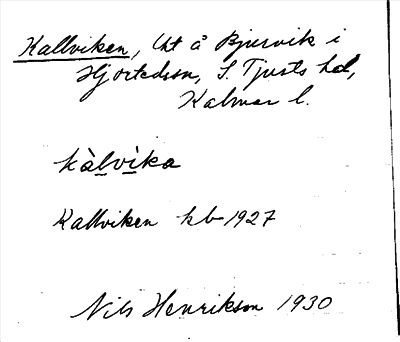 Kallviken, Uht å Bjursvik i
Hjorteds sn, S. Tjusts hd,
Kalmar l.
kàlvìka
Kallviken kb 1927
Nils Henrikson 1930